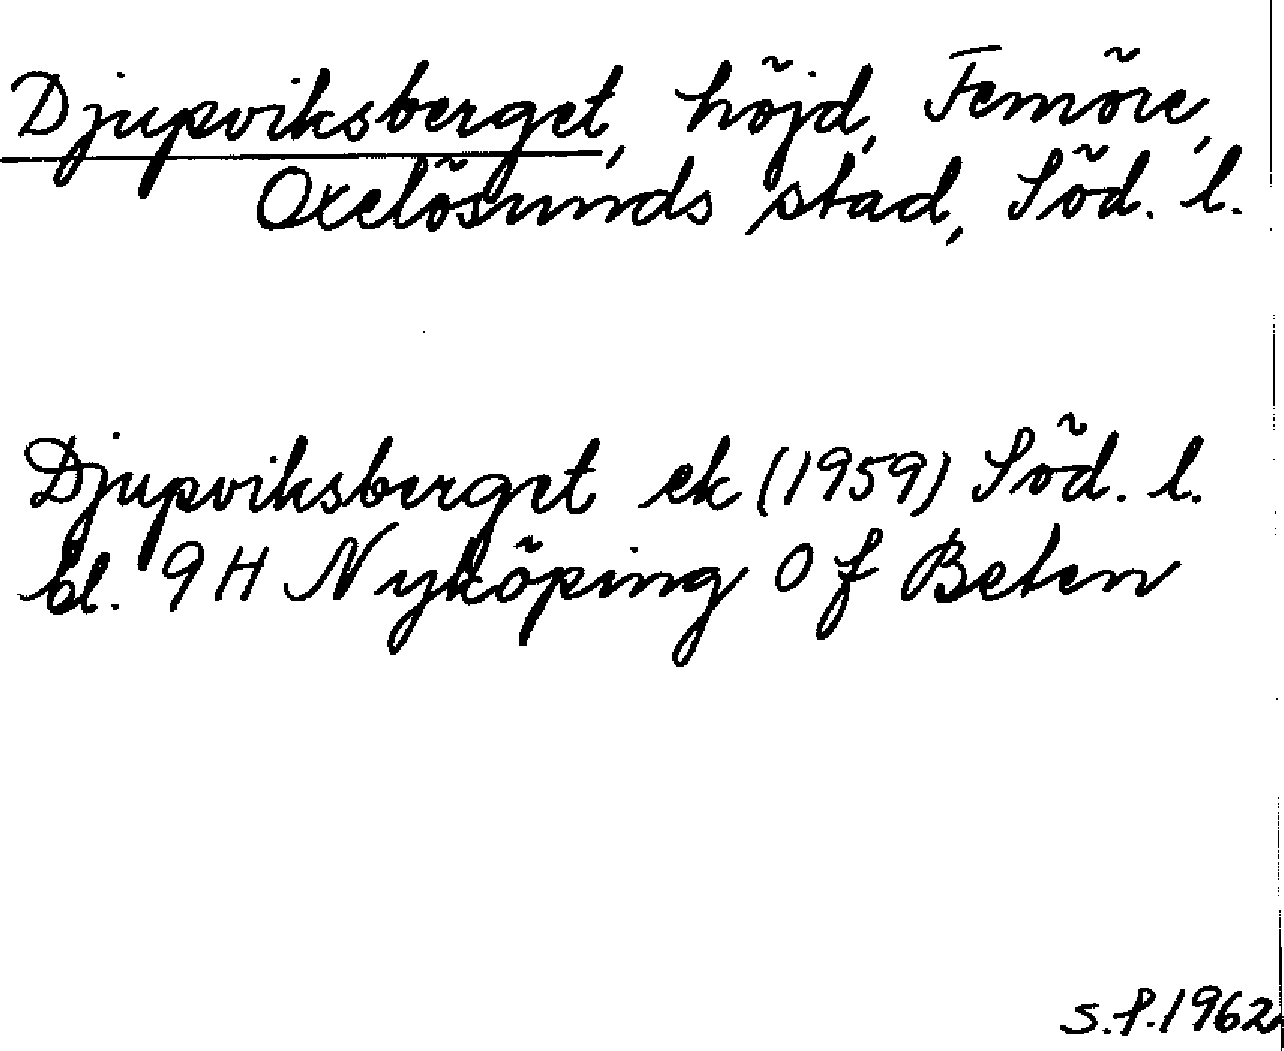 Djupviksberget, höjd, Femöre,
Oxelösunds stad, Söd. l.
Djupviksberget ek (1959) Söd. l.
bl. 9H Nyköping 0 f Beten
S.S. 1962